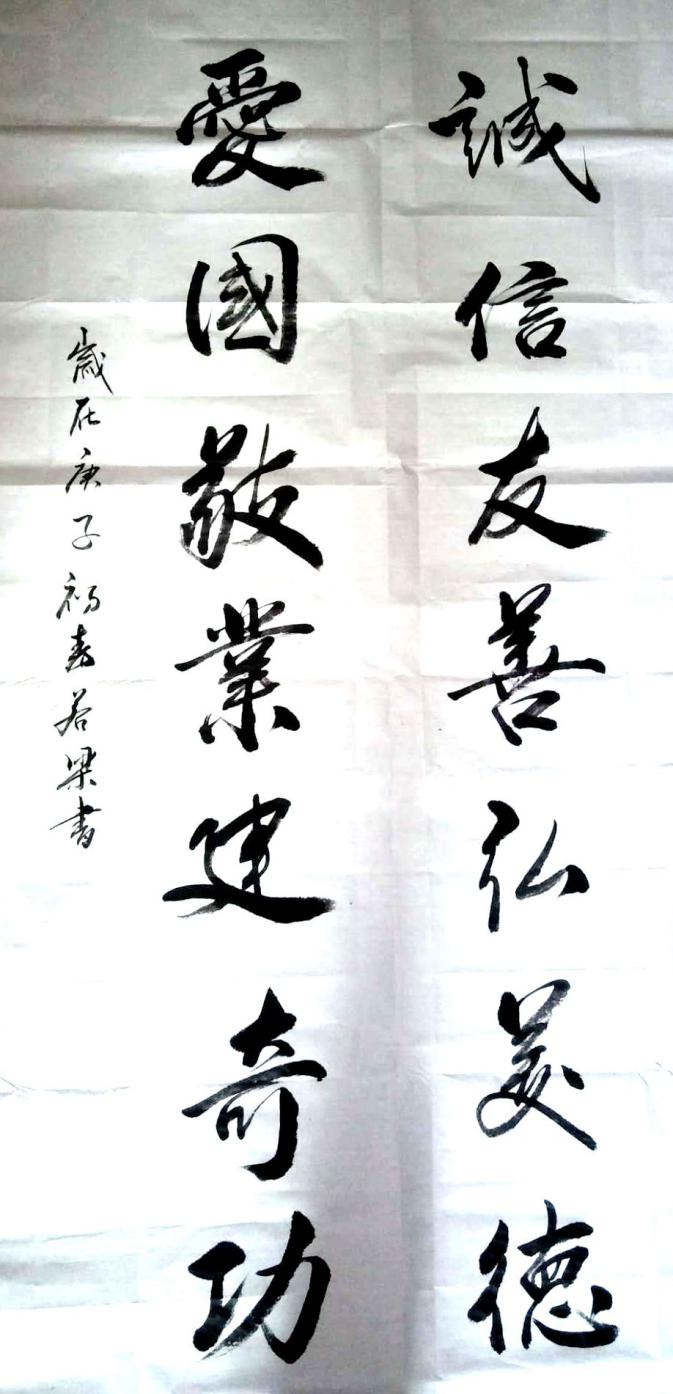 誠信友善弘美德
愛國敬業建奇功
歲在庚子初春若梁書